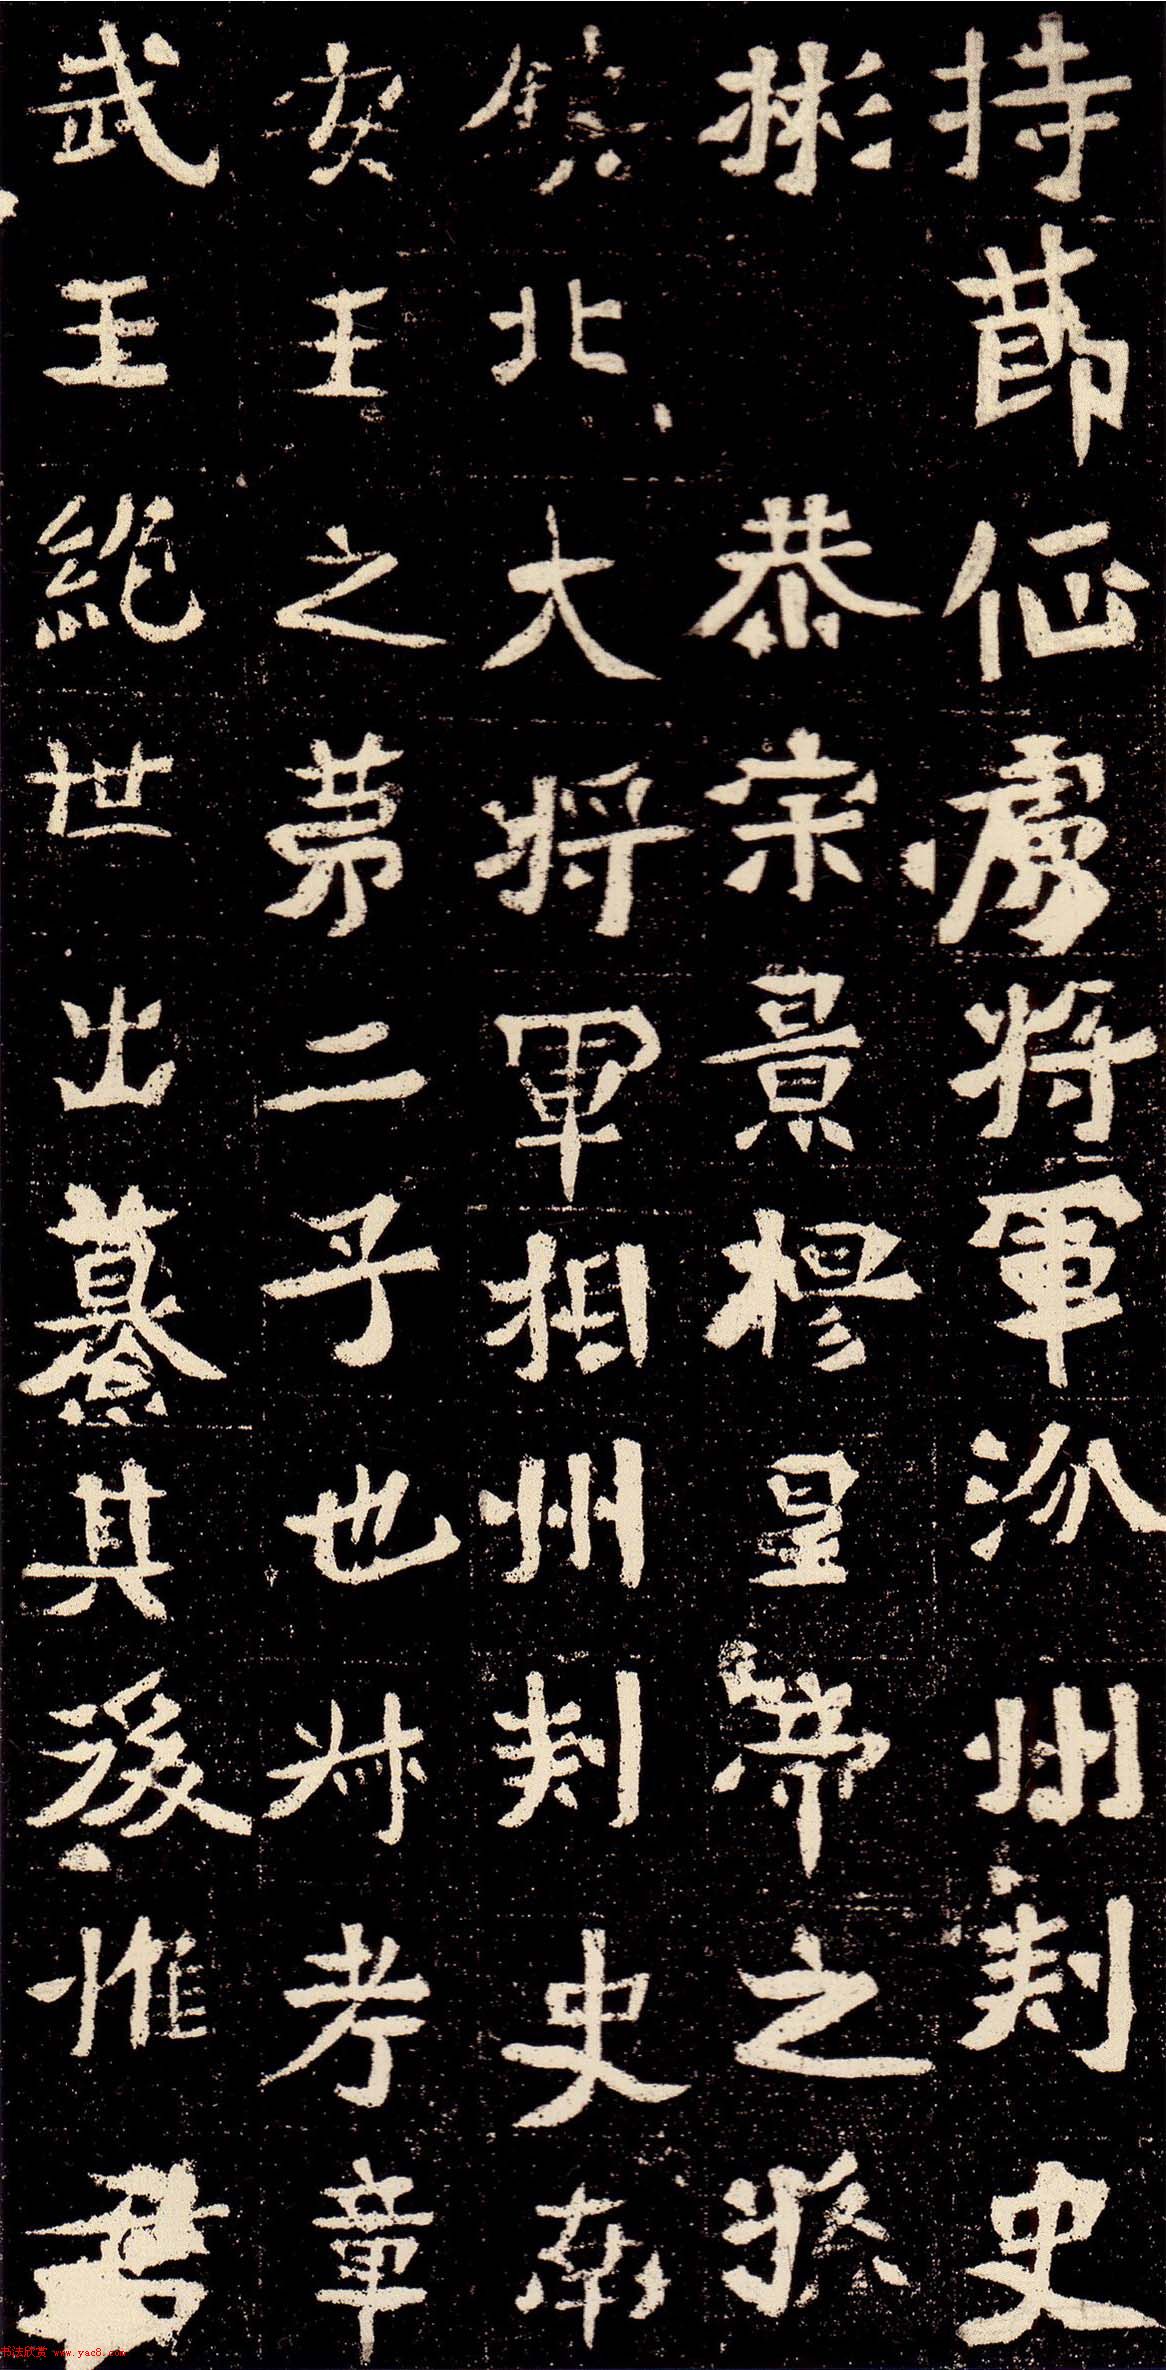 持節征虜將軍汾州刺史
彬恭宗景穆皇帝之孫
鎮北大將軍相州刺史南
安王之第二子也叔考章
武王絕世出纂其後惟君
书法欣赏 www.yac8.com